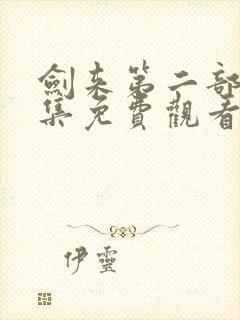 劍来第二部
集免費觀看
伊靈